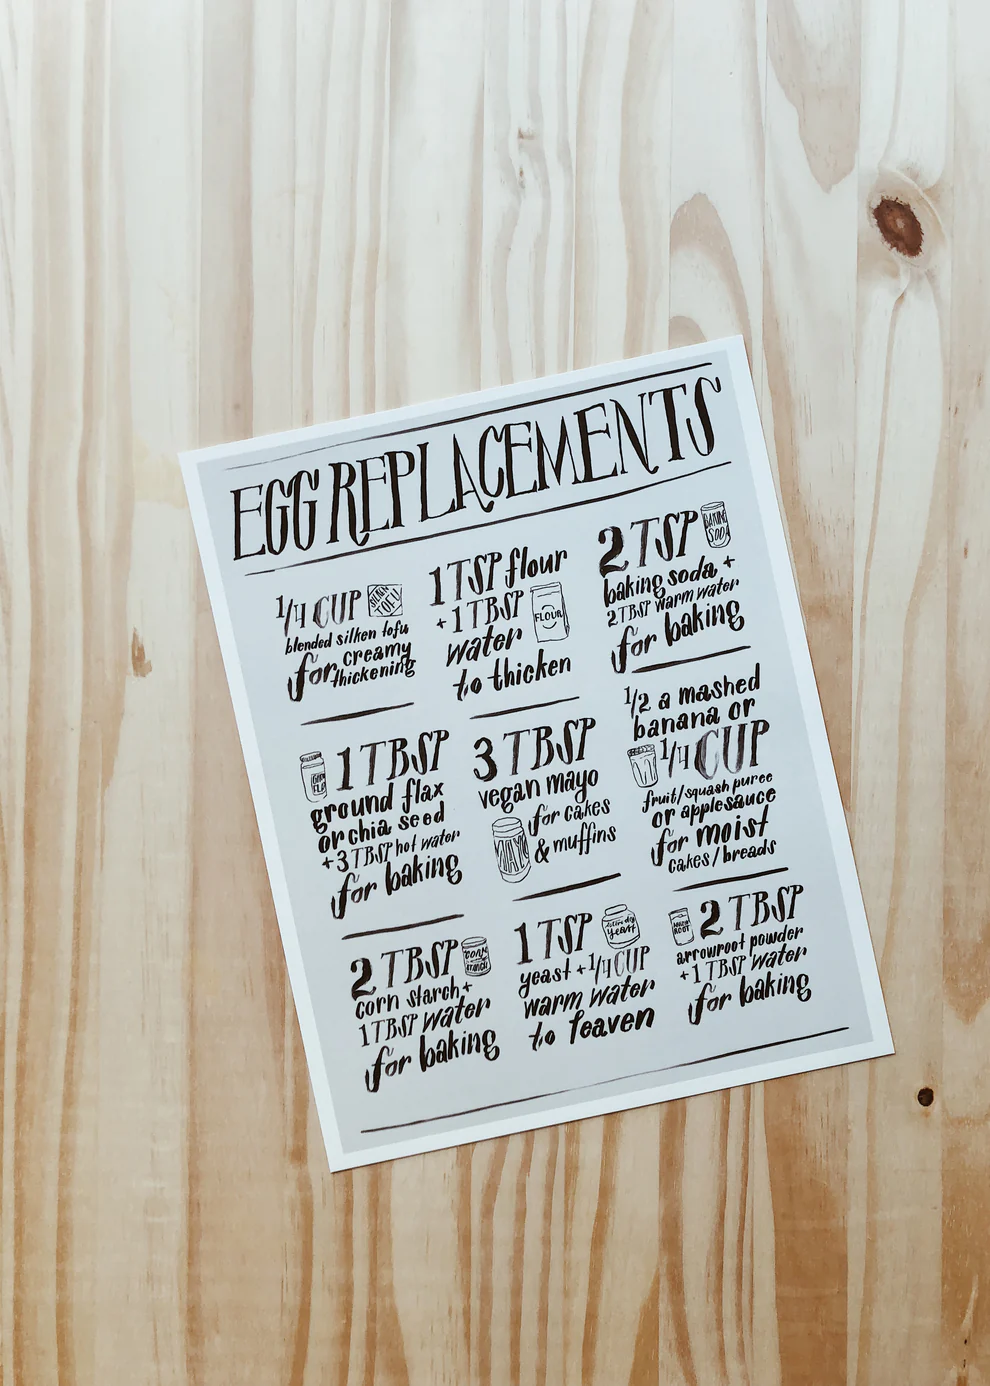 EGG REPLACEMENTS
1/4 CUP
SILKEN
TOFU
blended silken tofu
for creamy
thickening
1 TSP flour
+ 1 TBSP
water
FLOUR
to thicken
2 TSP
BAKING
SODA
baking soda +
2 TBSP warm water
for baking
1 TBSP
ground flax
or chia seed
+ 3 TBSP hot water
for baking
3 TBSP
vegan mayo
for cakes
& muffins
MAYO
1/2 a mashed
banana or
1/4 CUP
fruit/squash puree
or applesauce
for moist
cakes/breads
2 TBSP
CORN
STARCH
corn starch +
1 TBSP water
for baking
1 TSP
yeast
yeast + 1/4 CUP
warm water
to leaven
2 TBSP
ARROW
ROOT
arrowroot powder
+ 1 TBSP water
for baking